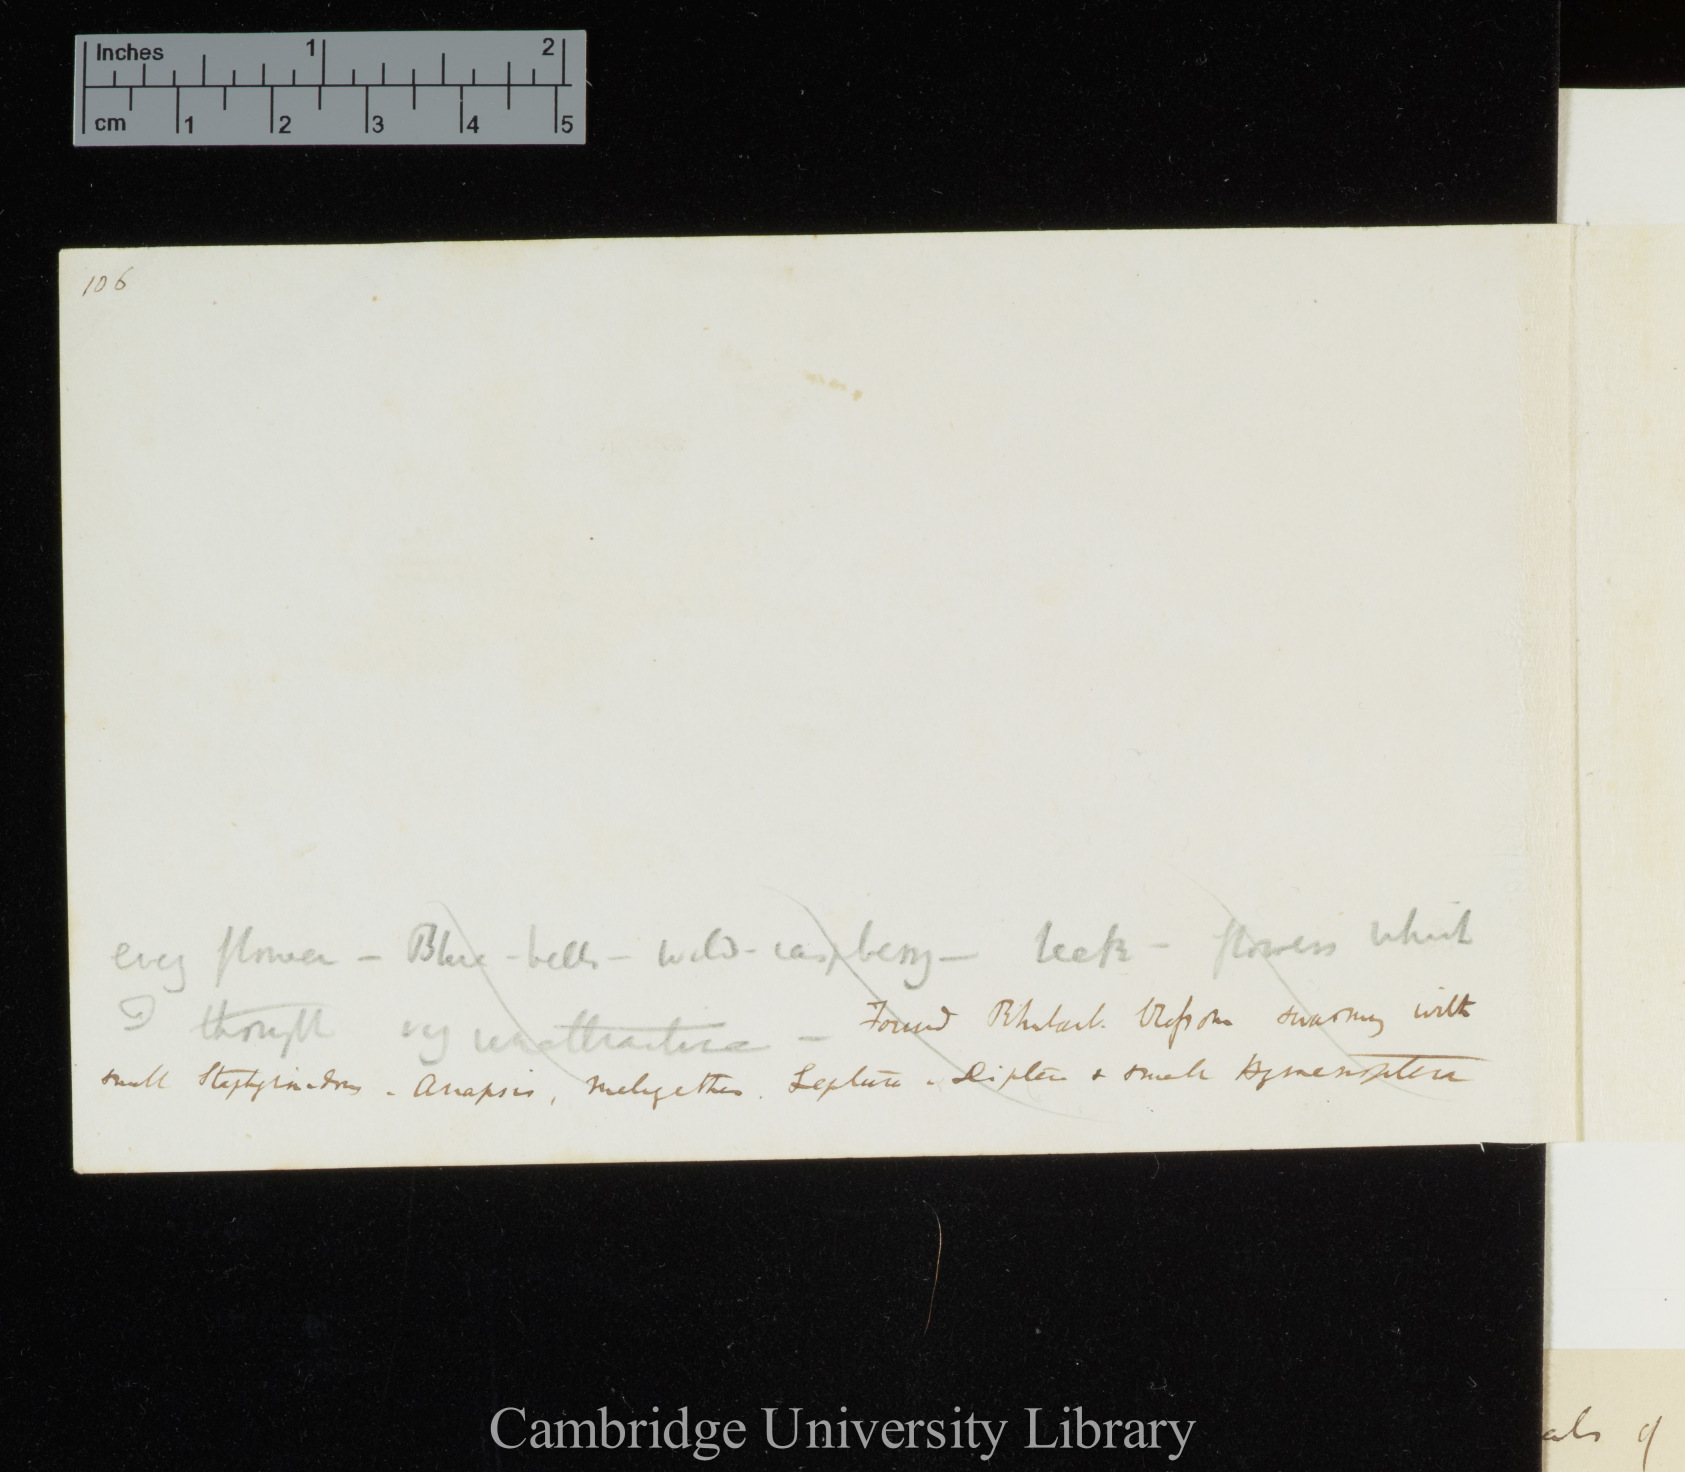 Inches 1 2
cm 1 2 3 4 5
106
every flower – Blue-bells – wild-raspberry – leek – flowers which
I thought very unattractive – Found Rhubarb blossom swarming with
small Staphylinidous – Anapsis, Meligethes. Leptura – Diptera & small Hymenoptera
als of
Cambridge University Library